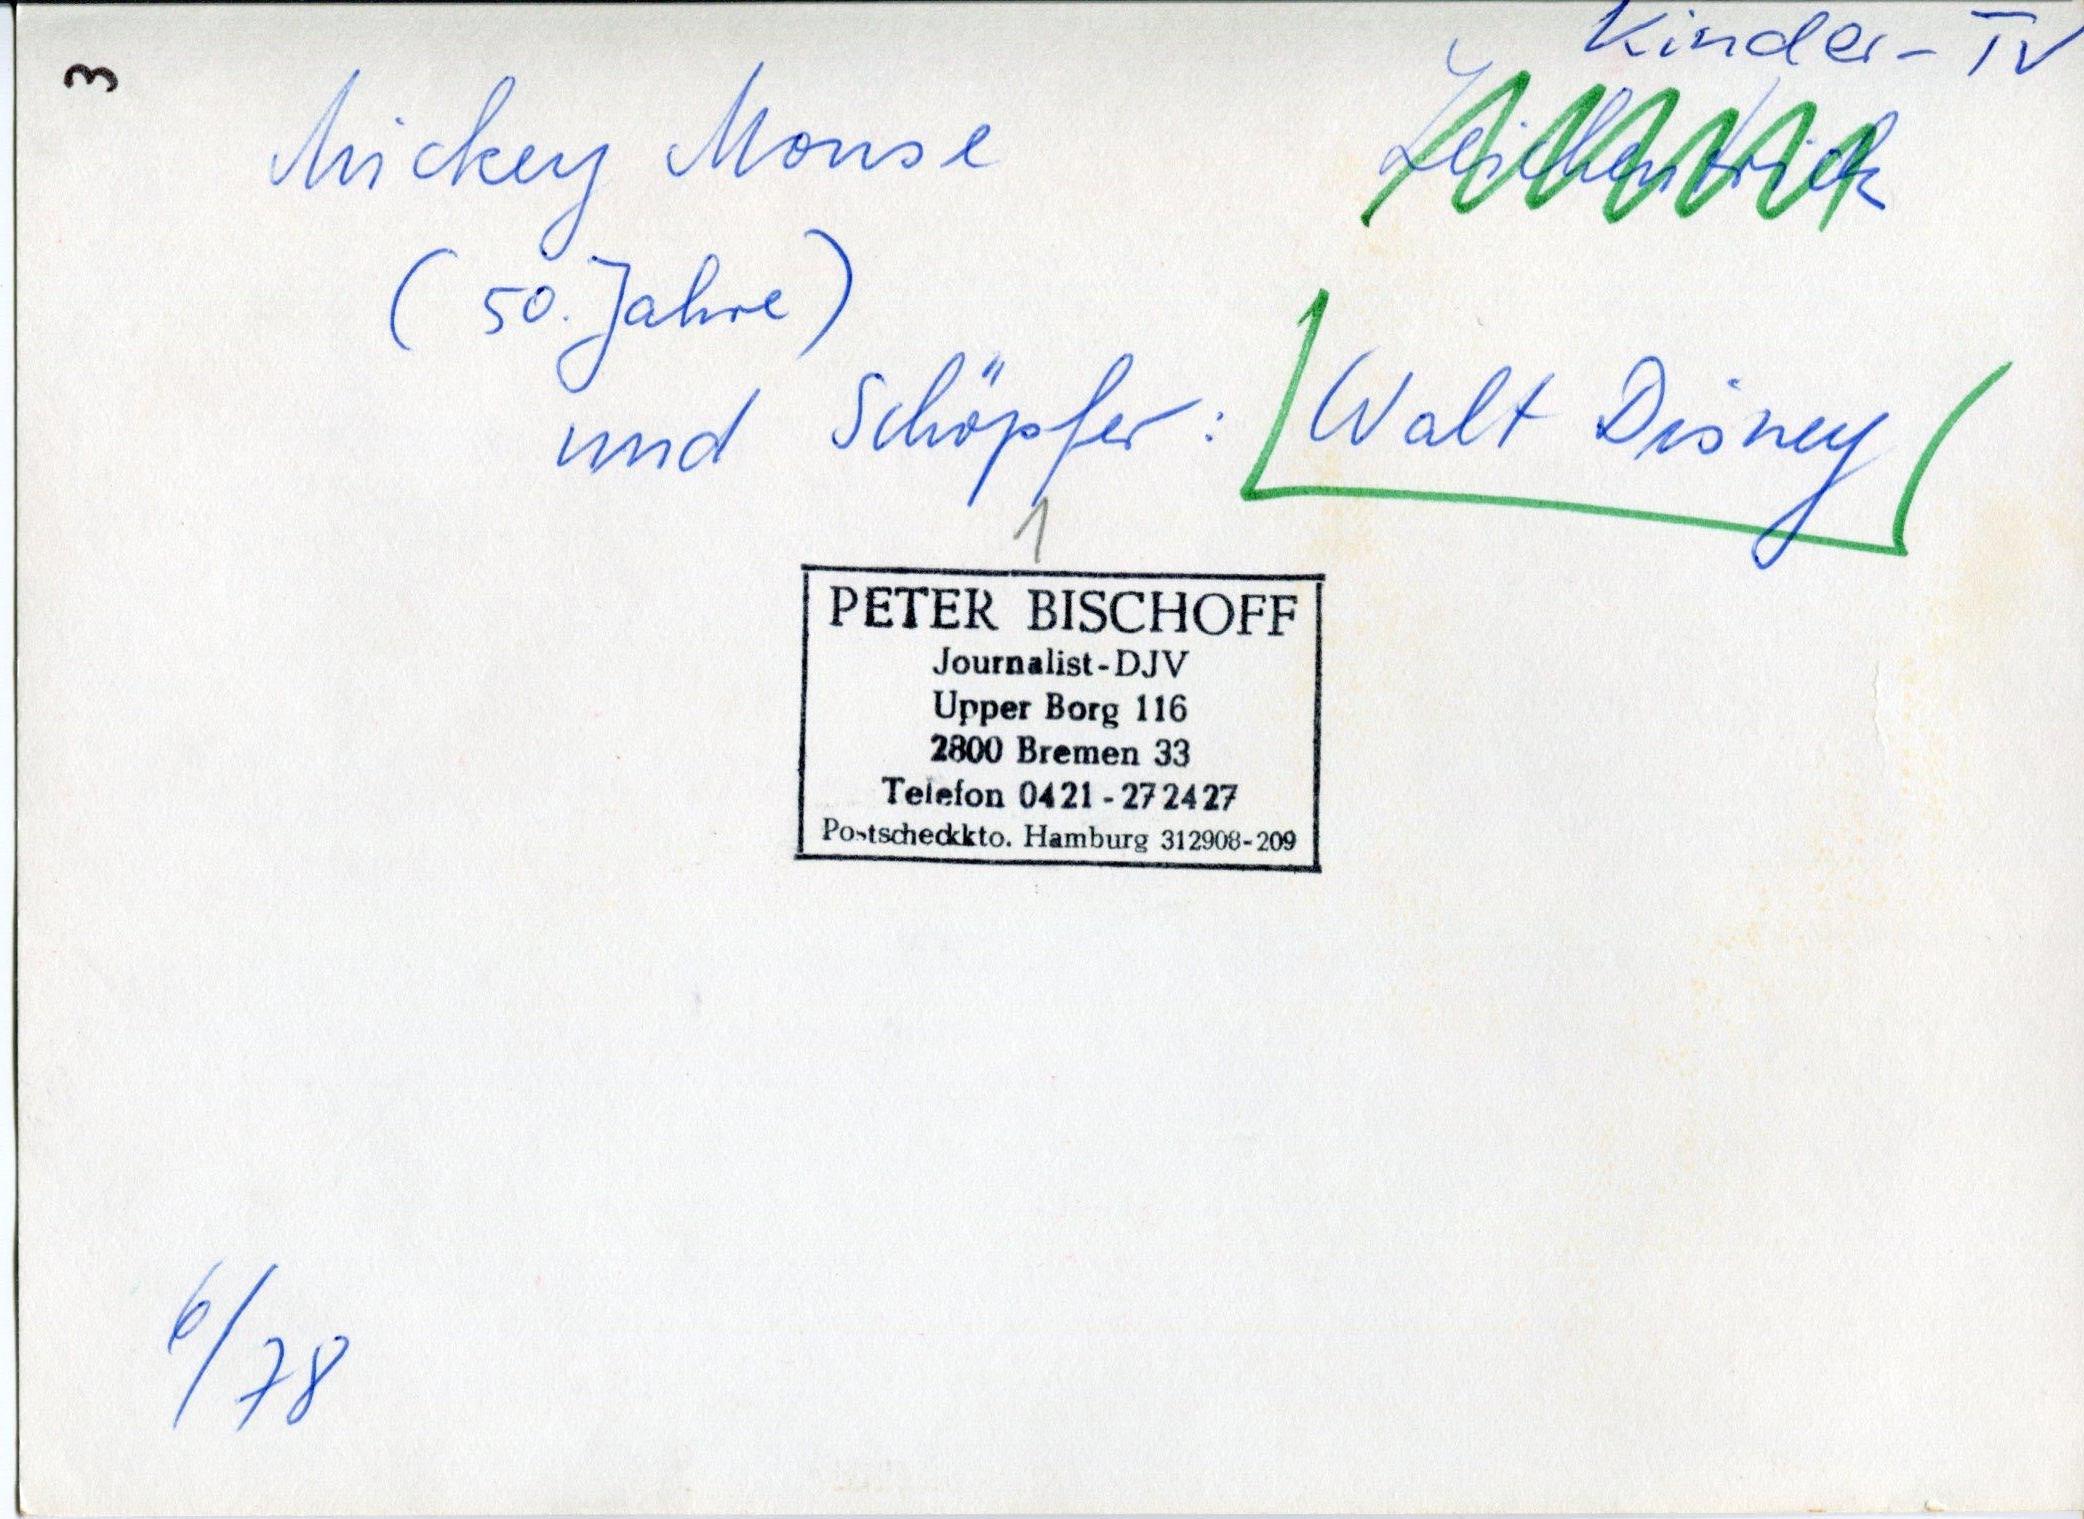 3
Kinder-TV
Mickey Mouse
Zeichentrick
(50. Jahre)
und Schöpfer: Walt Disney
1
PETER BISCHOFF
Journalist-DJV
Upper Borg 116
2800 Bremen 33
Telefon 0421-272427
Postscheckkto. Hamburg 312908-209
6/78